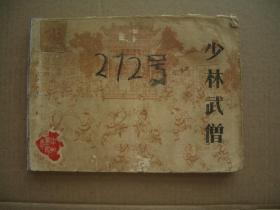 少林武僧
272号